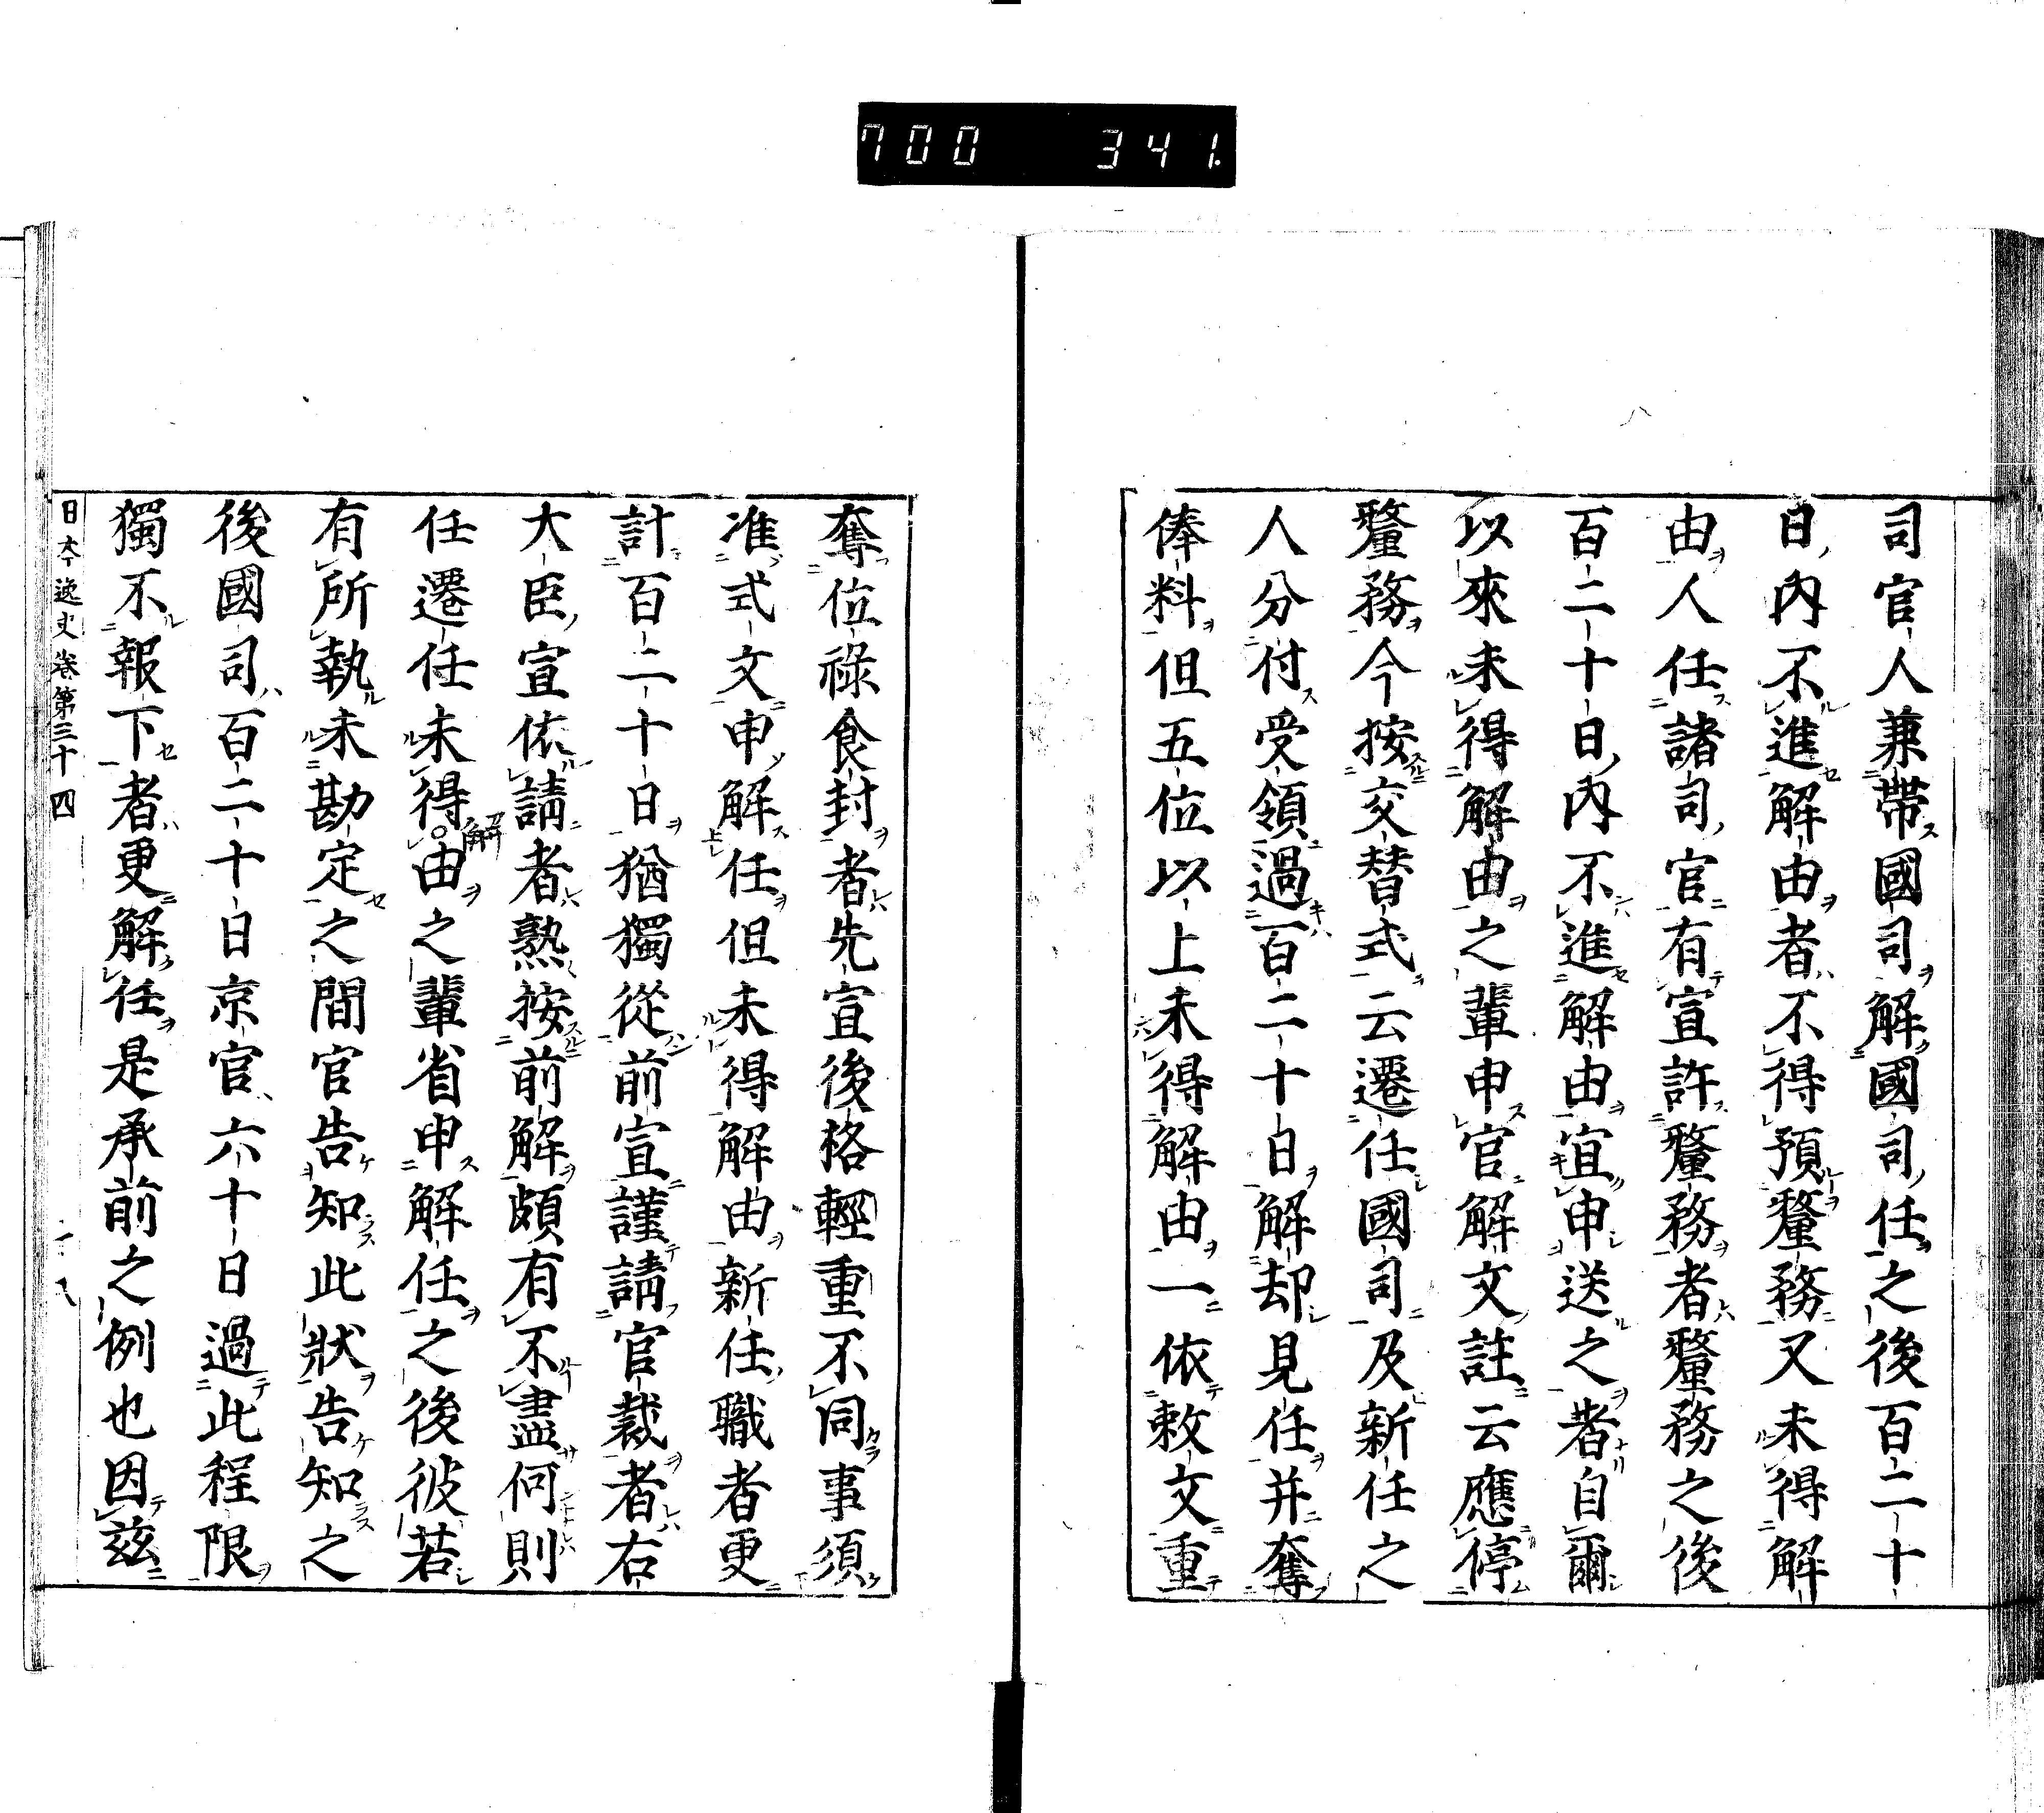 700 341.
司官人兼帶國司解國司任之後百二十
日內不進解由者不得預釐務又未得解
由人任諸司官有宣許釐務者釐務之後
百二十日內不進解由宜申送之者自爾
以來未得解由之輩申官解文註云應停
釐務今按交替式云遷任國司及新任之
人分付受領過百二十日解却見任并奪
俸料但五位以上未得解由一依敕文重
奪位祿食封者先宣後格輕重不同事須
准式文申解任但未得解由新任職者更
計百二十日猶獨從前宣謹請官裁者右
大臣宣依請者熟按前解頗有不盡何則
任遷任未得解由之輩省申解任之後彼若
有所執未勘定之間官告知此狀告知之
後國司百二十日京官六十日過此程限
獨不報下者更解任是承前之例也因茲
日本逸史卷第三十四